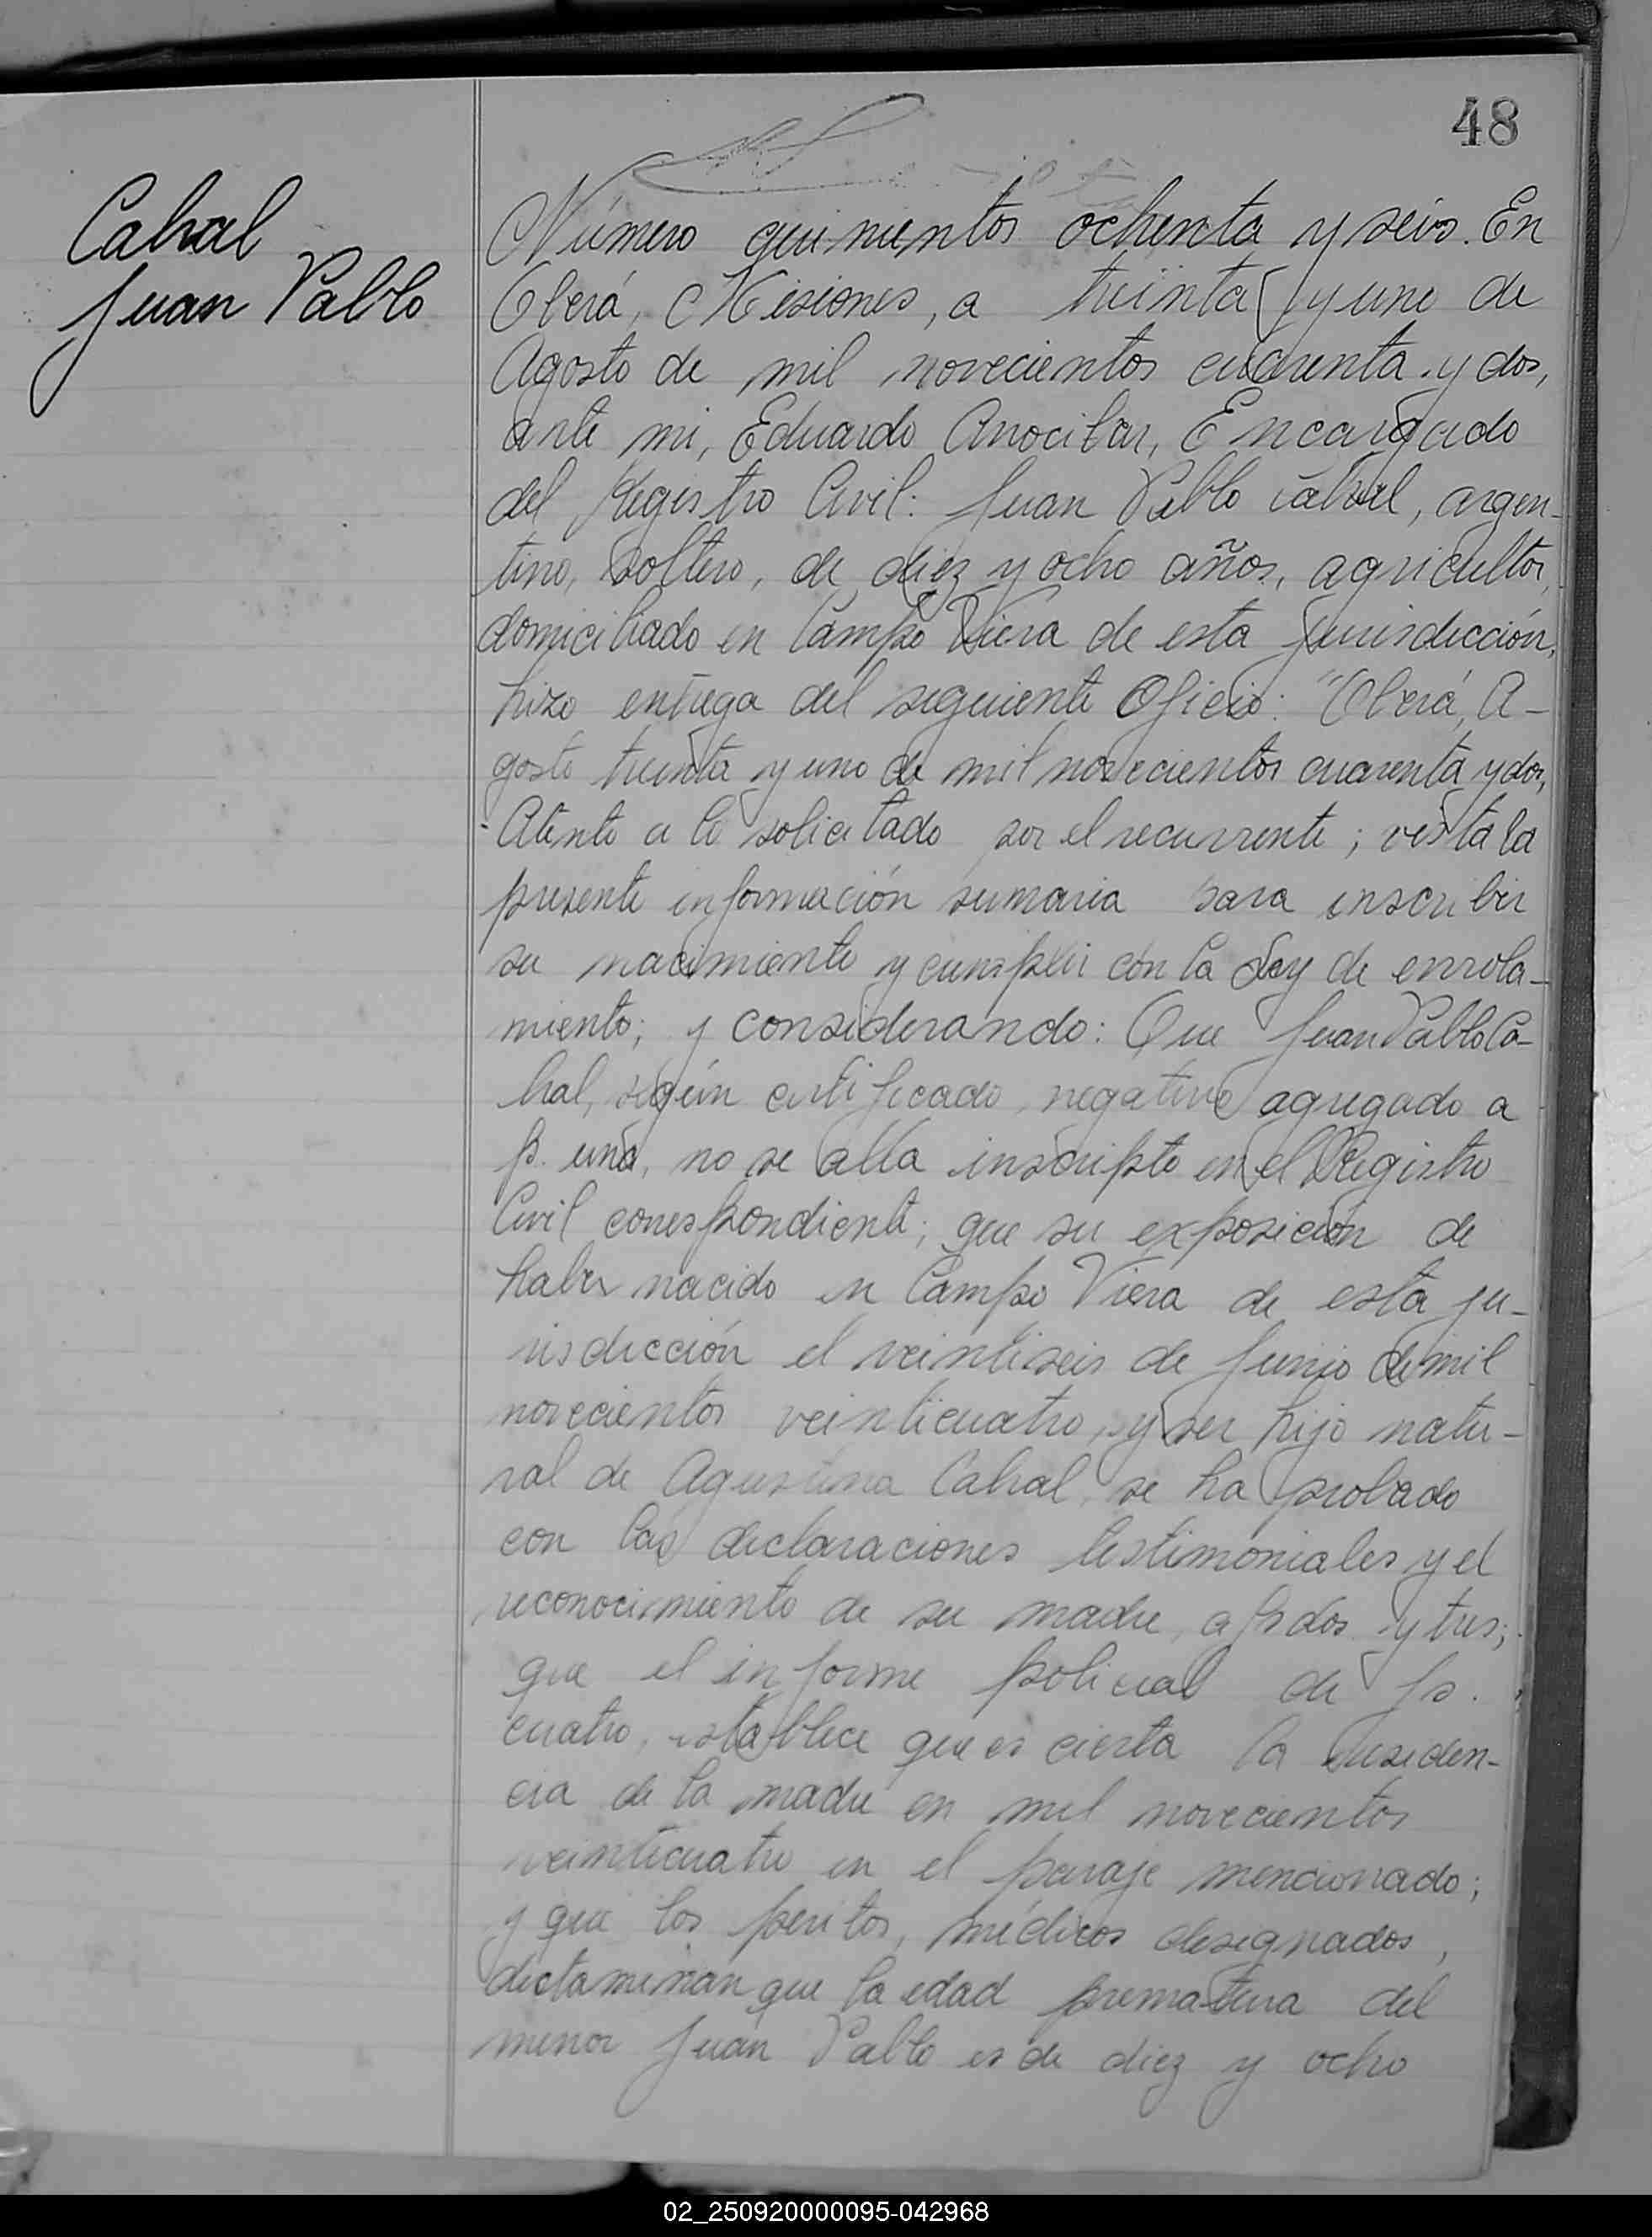 48
Cabral
Juan Pablo
Número quinientos ochenta y seis. En
Oberá, Misiones, a treinta y uno de
Agosto de mil novecientos cuarenta y dos,
ante mi, Eduardo Encargado
del Registro Civil: Juan Pablo Cabral, argen-
tino, soltero, de diez y ocho años, agricultor,
domiciliado en Campo Viera de esta jurisdicción,
hizo entrega del siguiente Oficio: "Oberá, A-
gosto treinta y uno de mil novecientos cuarenta y dos,
Atento a lo solicitado por el recurrente; vista la
presente información sumaria para inscribir
su nacimiento y cumplir con la Ley de enrola-
miento; y considerando: Que Juan Pablo Ca-
bral, según certificado negativo agregado a
fs. una, no se alla inscripto en el Registro
Civil correspondiente; que su exposición de
haber nacido en Campo Viera de esta ju-
risdicción el veintiseis de Junio de mil
novecientos veinticuatro, y ser hijo natu-
ral de Agustina Cabral, se ha probado
con las declaraciones testimoniales y el
reconocimiento de su madre, a fs dos y tres;
que el informe policial de fs.
cuatro, establece que es cierta la residen-
cia de la madre en mil novecientos
veinticuatro en el paraje mencionado;
y que los peritos, médicos designados,
dictaminan que la edad prematura del
menor Juan Pablo es de diez y ocho
02_250920000095-042968